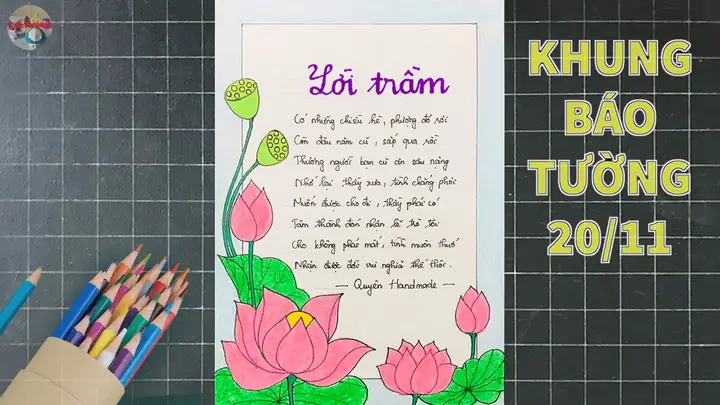 Lời trầm
Có những chiều hè, phượng đỏ rơi
Còn đâu năm cũ, sắp qua rồi
Thương người bạn cũ ơn sâu nặng
Nhớ lại thầy xưa, tình chẳng phôi
Muốn được cho đi, thầy phải có
Tâm thành đón nhận lẽ trò tôi
Cho không phải mất, tình muôn thuở
Nhận được đổi vui nghĩa thế thôi.
— Quyên Handmade —
KHUNG
BÁO
TƯỜNG
20/11